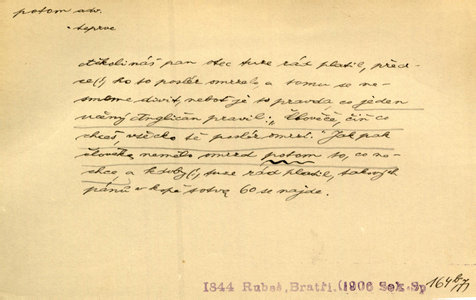 potom adv.
- teprve
Ačkoli náš pan otec tuze rád platil, před-
se(!) ho to posléz mrzelo, a tomu se ne-
smíme divit, neboť je to pravda, co jeden
učený Angličan pravil: „Člověče, čiň co
chceš, všecko tě posléz omrzí." Jak pak
člověka nemělo mrzet potom to, co ne-
chce, a kdyby(!) tuze rád platil, takových
pánů v kopě sotva 60 se najde.
1844 Rubeš, Bratři.(1906 Seb. Sp
164b/71